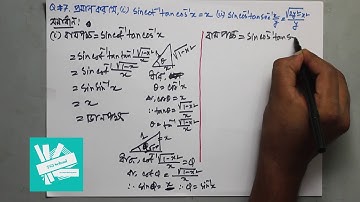 Q.#7. প্রমাণ কর যে, (i) sin cot⁻¹ tan cos⁻¹x = x (ii) sin cos⁻¹ tan sin⁻¹
সমাধান:
(i) বামপক্ষ = sin cot⁻¹ tan cos⁻¹x
= sin cot⁻¹ tan tan⁻¹ √(1-x²)/x
= sin cot⁻¹ √(1-x²)/x
= sin sin⁻¹x
= x
= ডানপক্ষ
ধরি, cos⁻¹x = θ
বা, cosθ = x
∴ tanθ = √(1-x²)/x
∴ θ = tan⁻¹ √(1-x²)/x
ধরি, cot⁻¹ √(1-x²)/x = Q
বা, cot Q = √(1-x²)/x
∴ sin Q = x ∴ Q = sin⁻¹x
বামপক্ষ = sin cos⁻¹ tan s